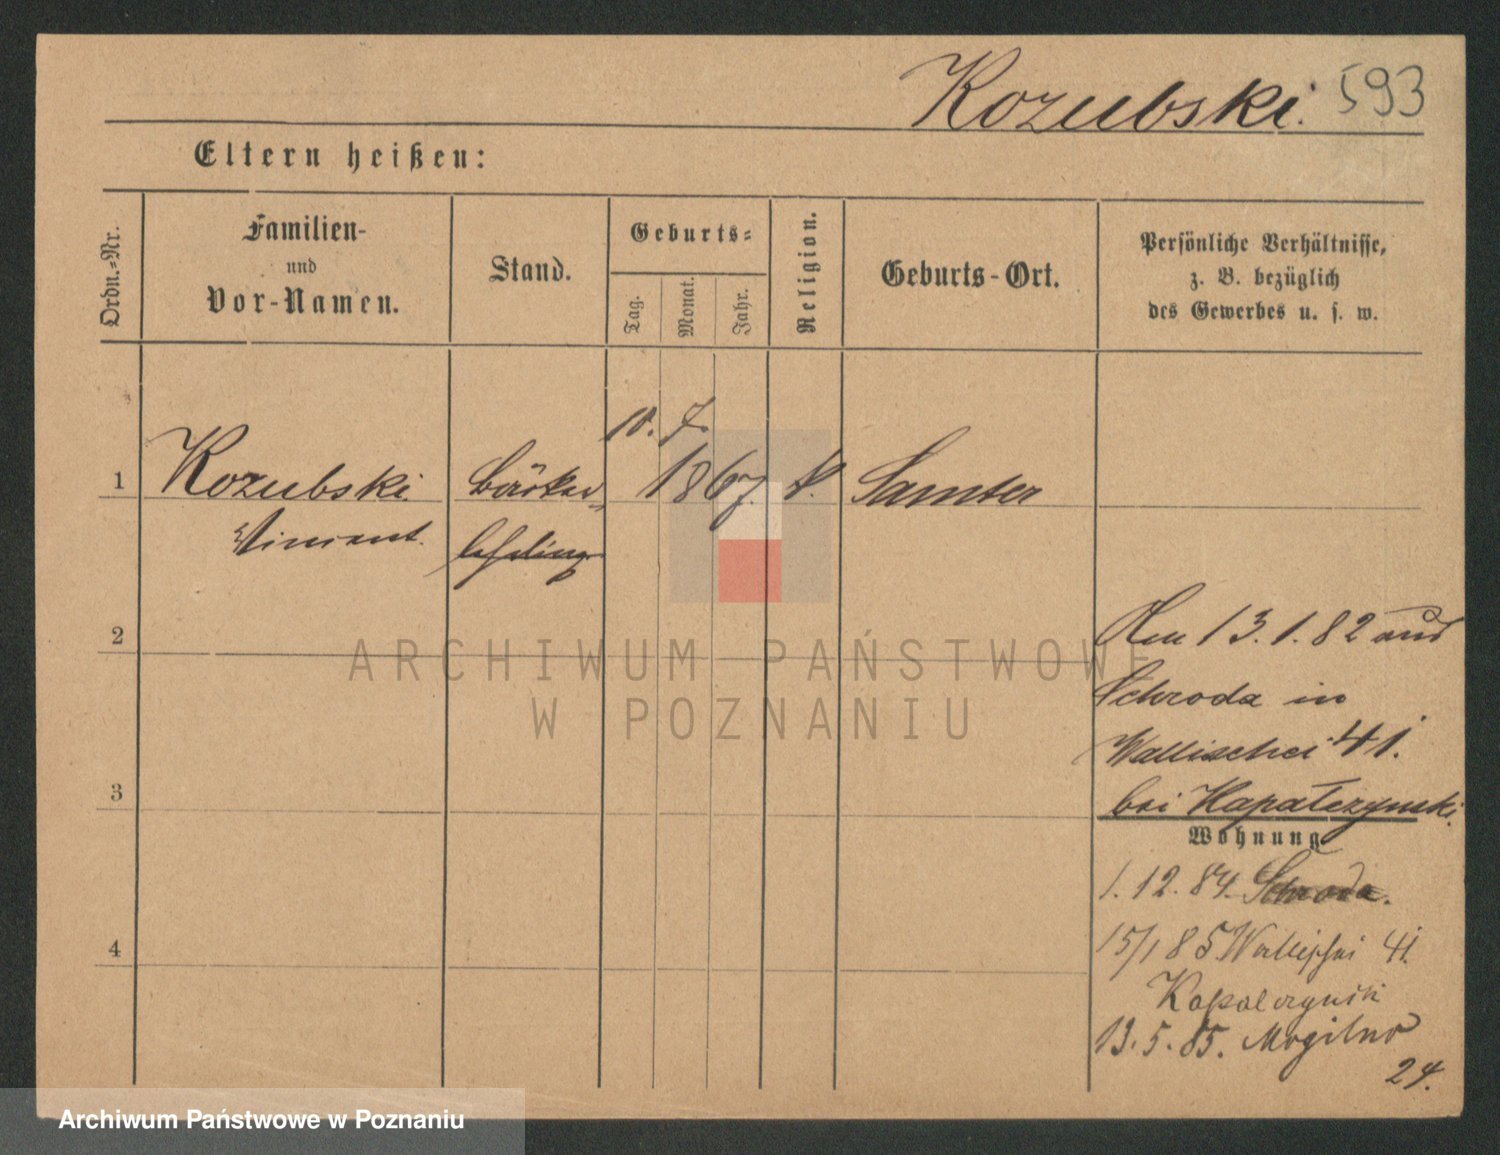 Kozubski. 593
Eltern heißen:
Ordn.=Nr.
Familien-
und
Vor-Namen.
Stand.
Geburts=
Tag.
Monat.
Jahr.
Religion.
Geburts-Ort.
Persönliche Verhältnisse,
z. B. bezüglich
des Gewerbes u. s. w.
10. 7.
1 Kozubski 1867. Samter
Vincent.
2
Den 13.1.82 aus
Schroda in
Wallischei 41.
3
bei Kapałczynski.
Wohnung
1.12.84. Schroda.
4
15/1 85 Wallischei 41.
Kapalczynski
13.5.85. Mogilno
24.
ARCHIWUM PAŃSTWOWE
W POZNANIU
Archiwum Państwowe w Poznaniu